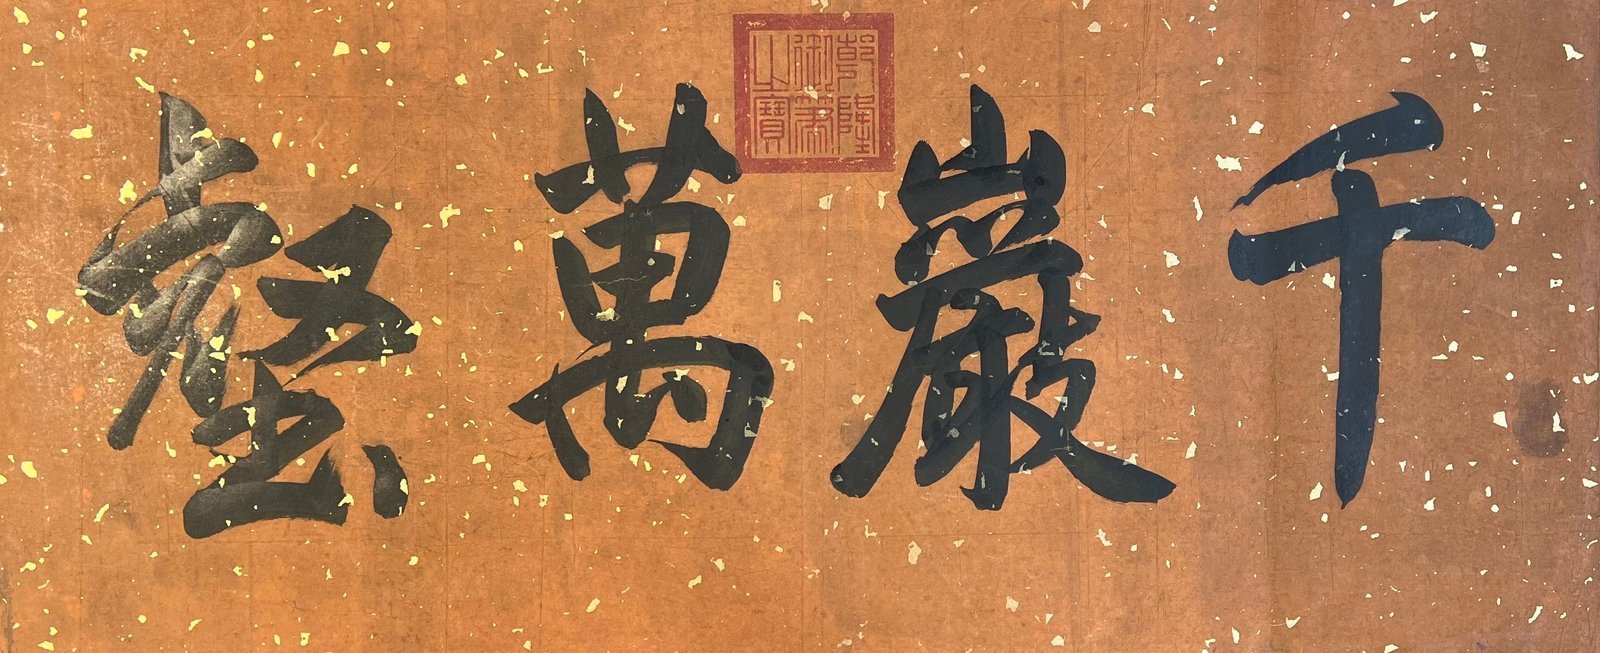 千巖萬壑
乾隆御筆之寶